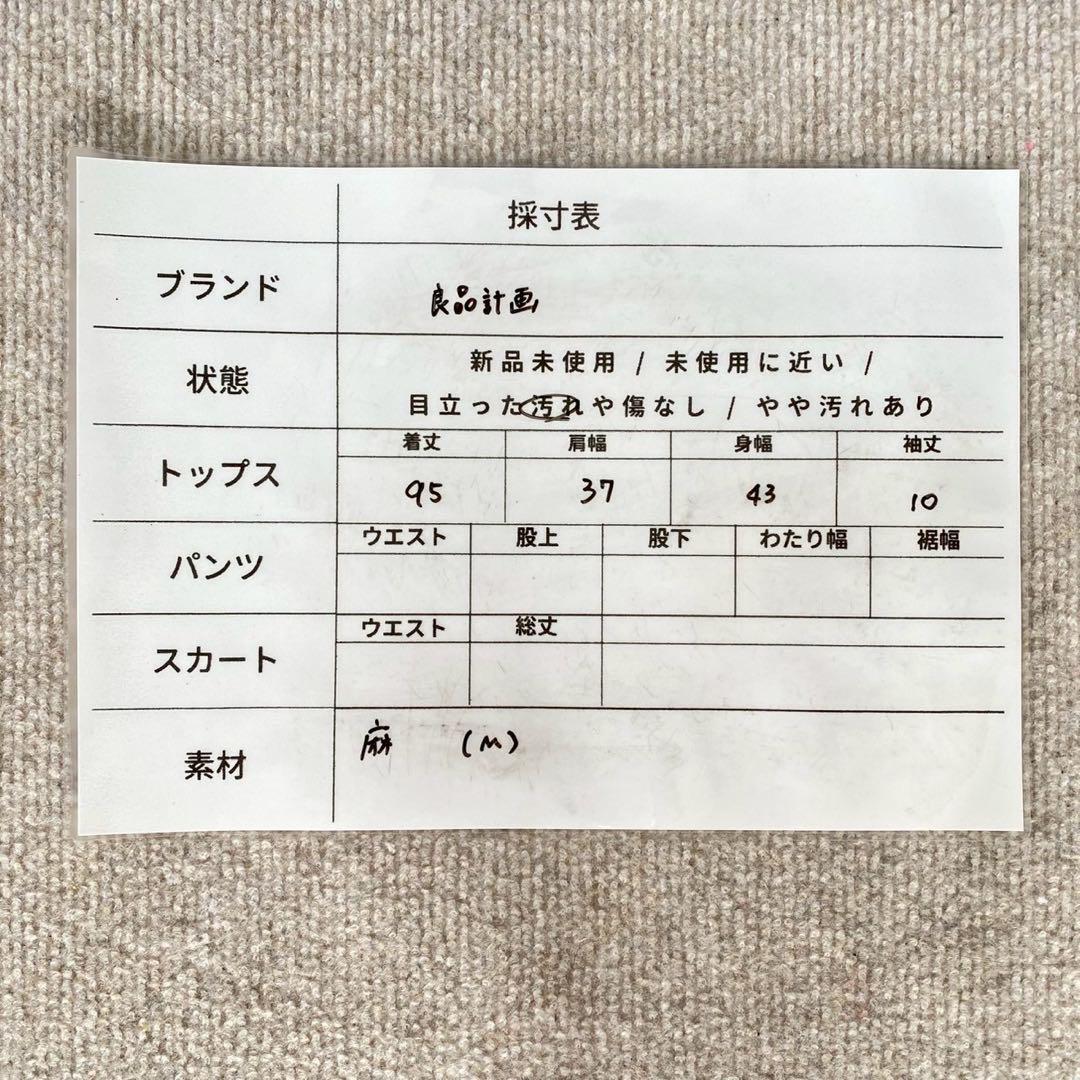 採寸表
ブランド
良品計画
状態
新品未使用 / 未使用に近い /
目立った汚れや傷なし / やや汚れあり
トップス
着丈 肩幅 身幅 袖丈
95 37 43 10
パンツ
ウエスト 股上 股下 わたり幅 裾幅
スカート
ウエスト 総丈
素材
麻 (M)